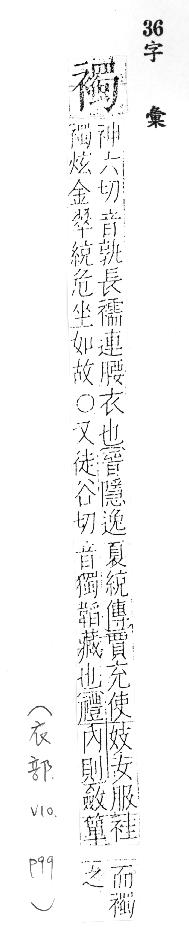 36
字彙
襡
神六切音孰長襦連腰衣也晉隱逸夏統傳賈充使妓女服袿
襡炫金翠統危坐如故○又徒谷切音獨韜藏也禮內則斂簟
而襡
之
(衣部. V10. P99)